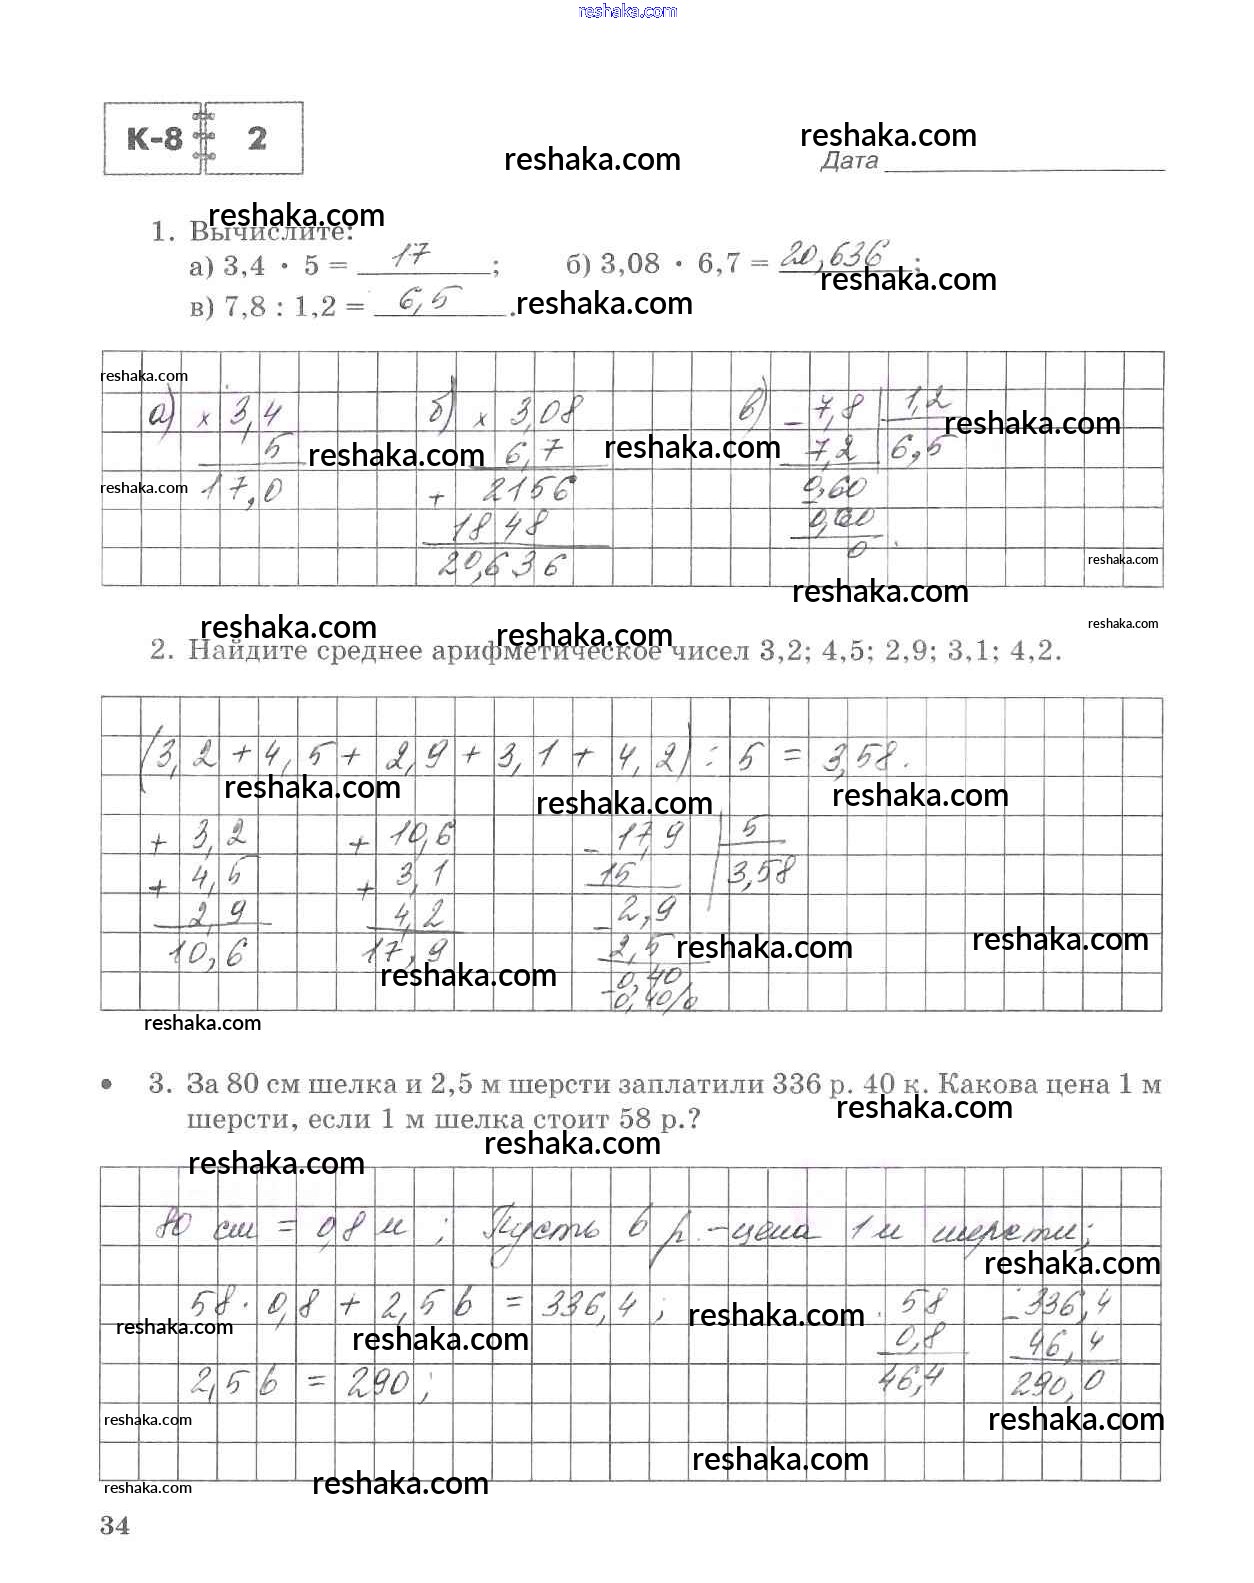 reshaka.com
К-8 2
reshaka.com
reshaka.com
Дата
reshaka.com
1. Вычислите:
а) 3,4 · 5 = 17 ; б) 3,08 · 6,7 = 20,636 ;
reshaka.com
в) 7,8 : 1,2 = 6,5 .
reshaka.com
reshaka.com
а) × 3,4 б) × 3,08 в) - 7,8 1,2
reshaka.com
5 6,7 7,2 6,5
reshaka.com reshaka.com
reshaka.com
17,0 + 2156 0,60
1848 0,60
20,636 0
reshaka.com
reshaka.com
reshaka.com
reshaka.com
reshaka.com
2. Найдите среднее арифметическое чисел 3,2; 4,5; 2,9; 3,1; 4,2.
(3,2 + 4,5 + 2,9 + 3,1 + 4,2) : 5 = 3,58.
reshaka.com reshaka.com reshaka.com
+ 3,2 + 10,6 - 17,9 5
+ 4,5 + 3,1 15 3,58
2,9 4,2 - 2,9
10,6 17,9 2,5
reshaka.com reshaka.com
reshaka.com
- 0,40
0,40/0
reshaka.com
• 3. За 80 см шелка и 2,5 м шерсти заплатили 336 р. 40 к. Какова цена 1 м
reshaka.com
шерсти, если 1 м шелка стоит 58 р.?
reshaka.com
reshaka.com
80 см = 0,8 м ; Пусть b р. - цена 1 м шерсти;
reshaka.com
58 · 0,8 + 2,5 b = 336,4 ; 58 - 336,4
reshaka.com
reshaka.com
reshaka.com
0,8 46,4
2,5 b = 290 ; 46,4 290,0
reshaka.com
reshaka.com
reshaka.com
reshaka.com
reshaka.com
34